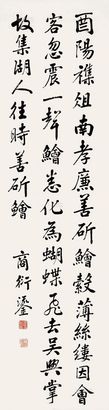 酉陽襍俎南孝廉善斫鱠縠薄絲縷因會
客忽震一聲鱠悉化為蝴蝶飛去吳興掌
故集湖人往時善斫鱠
商衍鎏